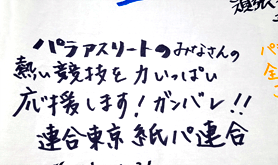 パラアスリートのみなさんの
熱い競技を力いっぱい
応援します!ガンバレ!!
連合東京紙パ連合